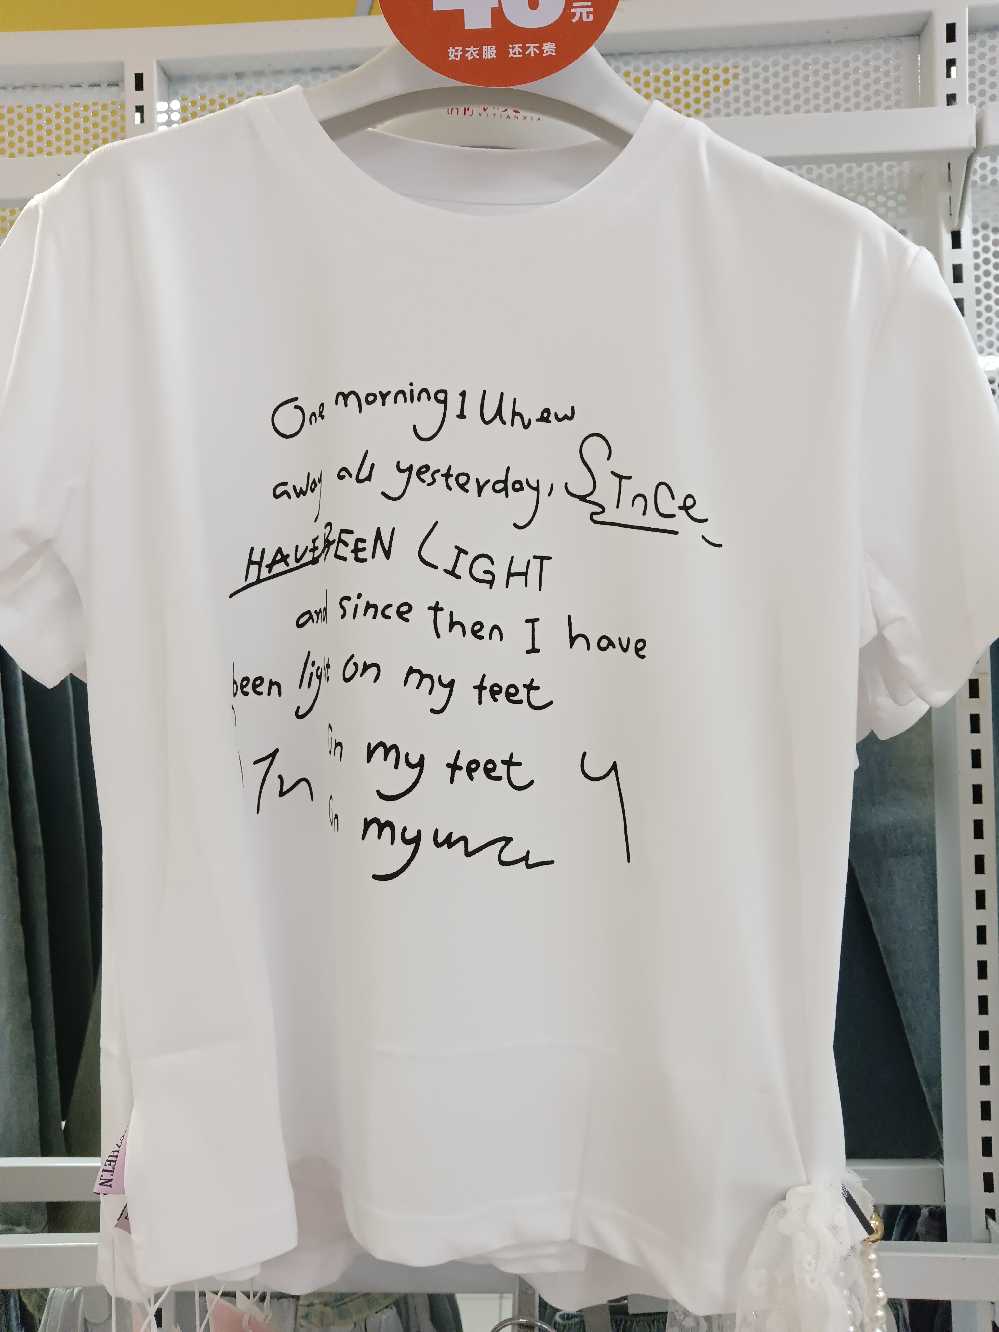 元
好衣服 还不贵
YITIANXIA
One morning 1 Uhew
away all yesterday, STnCe
HAVE BEEN LIGHT
and since then I have
been light on my teet
on my teet
on my